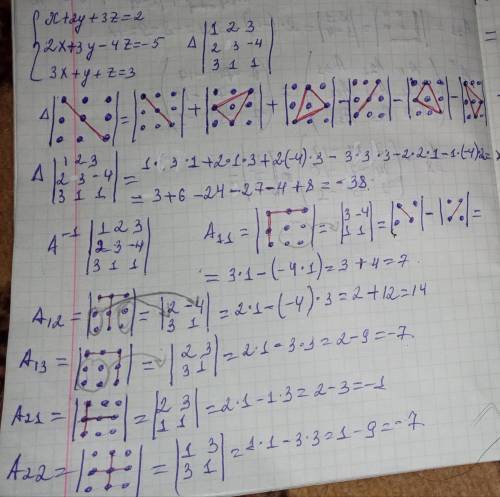 x+2y+3z=2
2x+3y-4z=-5
3x+y+z=3
Δ |1 2 3|
|2 3 -4|
|3 1 1|
Δ| | = | | + | | + | | - | | - | | - | |
Δ |1 2 3|
|2 3 -4| = 1·3·1+2·1·3+2(-4)·3-3·3·3-2·2·1-1·(-4)
|3 1 1| = 3+6-24-27-4+8=-38
A⁻¹ |1 2 3|
|2 3 -4|
|3 1 1|
A11 = | | = |3 -4| = | | - | | =
|1 1|
= 3·1-(-4·1)=3+4=7
A12 = | | = |2 -4| = 2·1-(-4)·3=2+12=14
|3 1|
A13 = | | = |2 3| = 2·1-3·1=2-9=-7
|3 1|
A21 = | | = |2 3| = 2·1-1·3=2-3=-1
|1 1|
A22 = | | = |1 3| = 1·1-3·3=1-9=-7
|3 1|